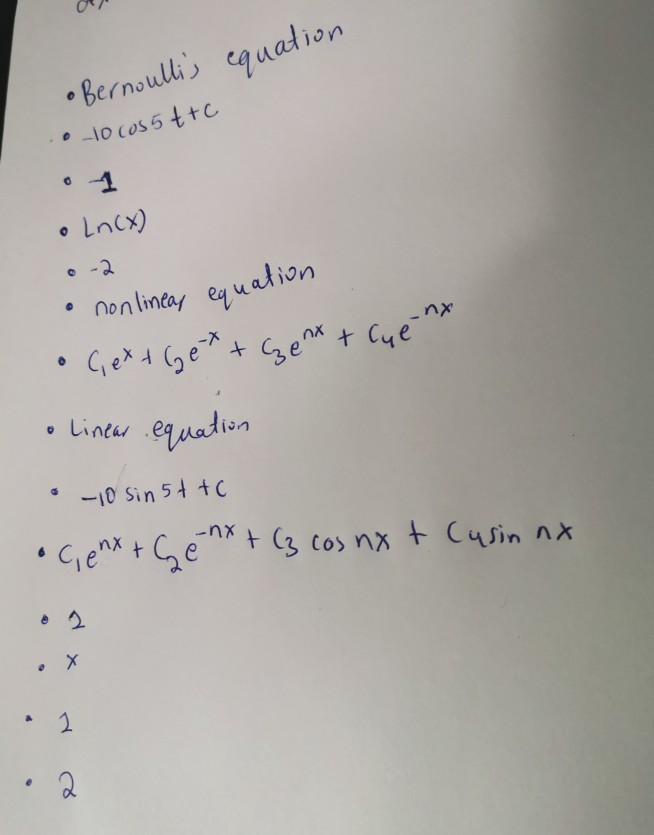 • Bernoulli's equation
• -10 cos 5 t + c
• -1
• Ln(x)
• -2
• nonlinear equation
• C₁eˣ + C₂e⁻ˣ + C₃eⁿˣ + C₄e⁻ⁿˣ
• Linear equation
• -10 sin 5t + c
• C₁eⁿˣ + C₂e⁻ⁿˣ + C₃ cos nx + C₄ sin nx
• 2
• x
• 1
• 2